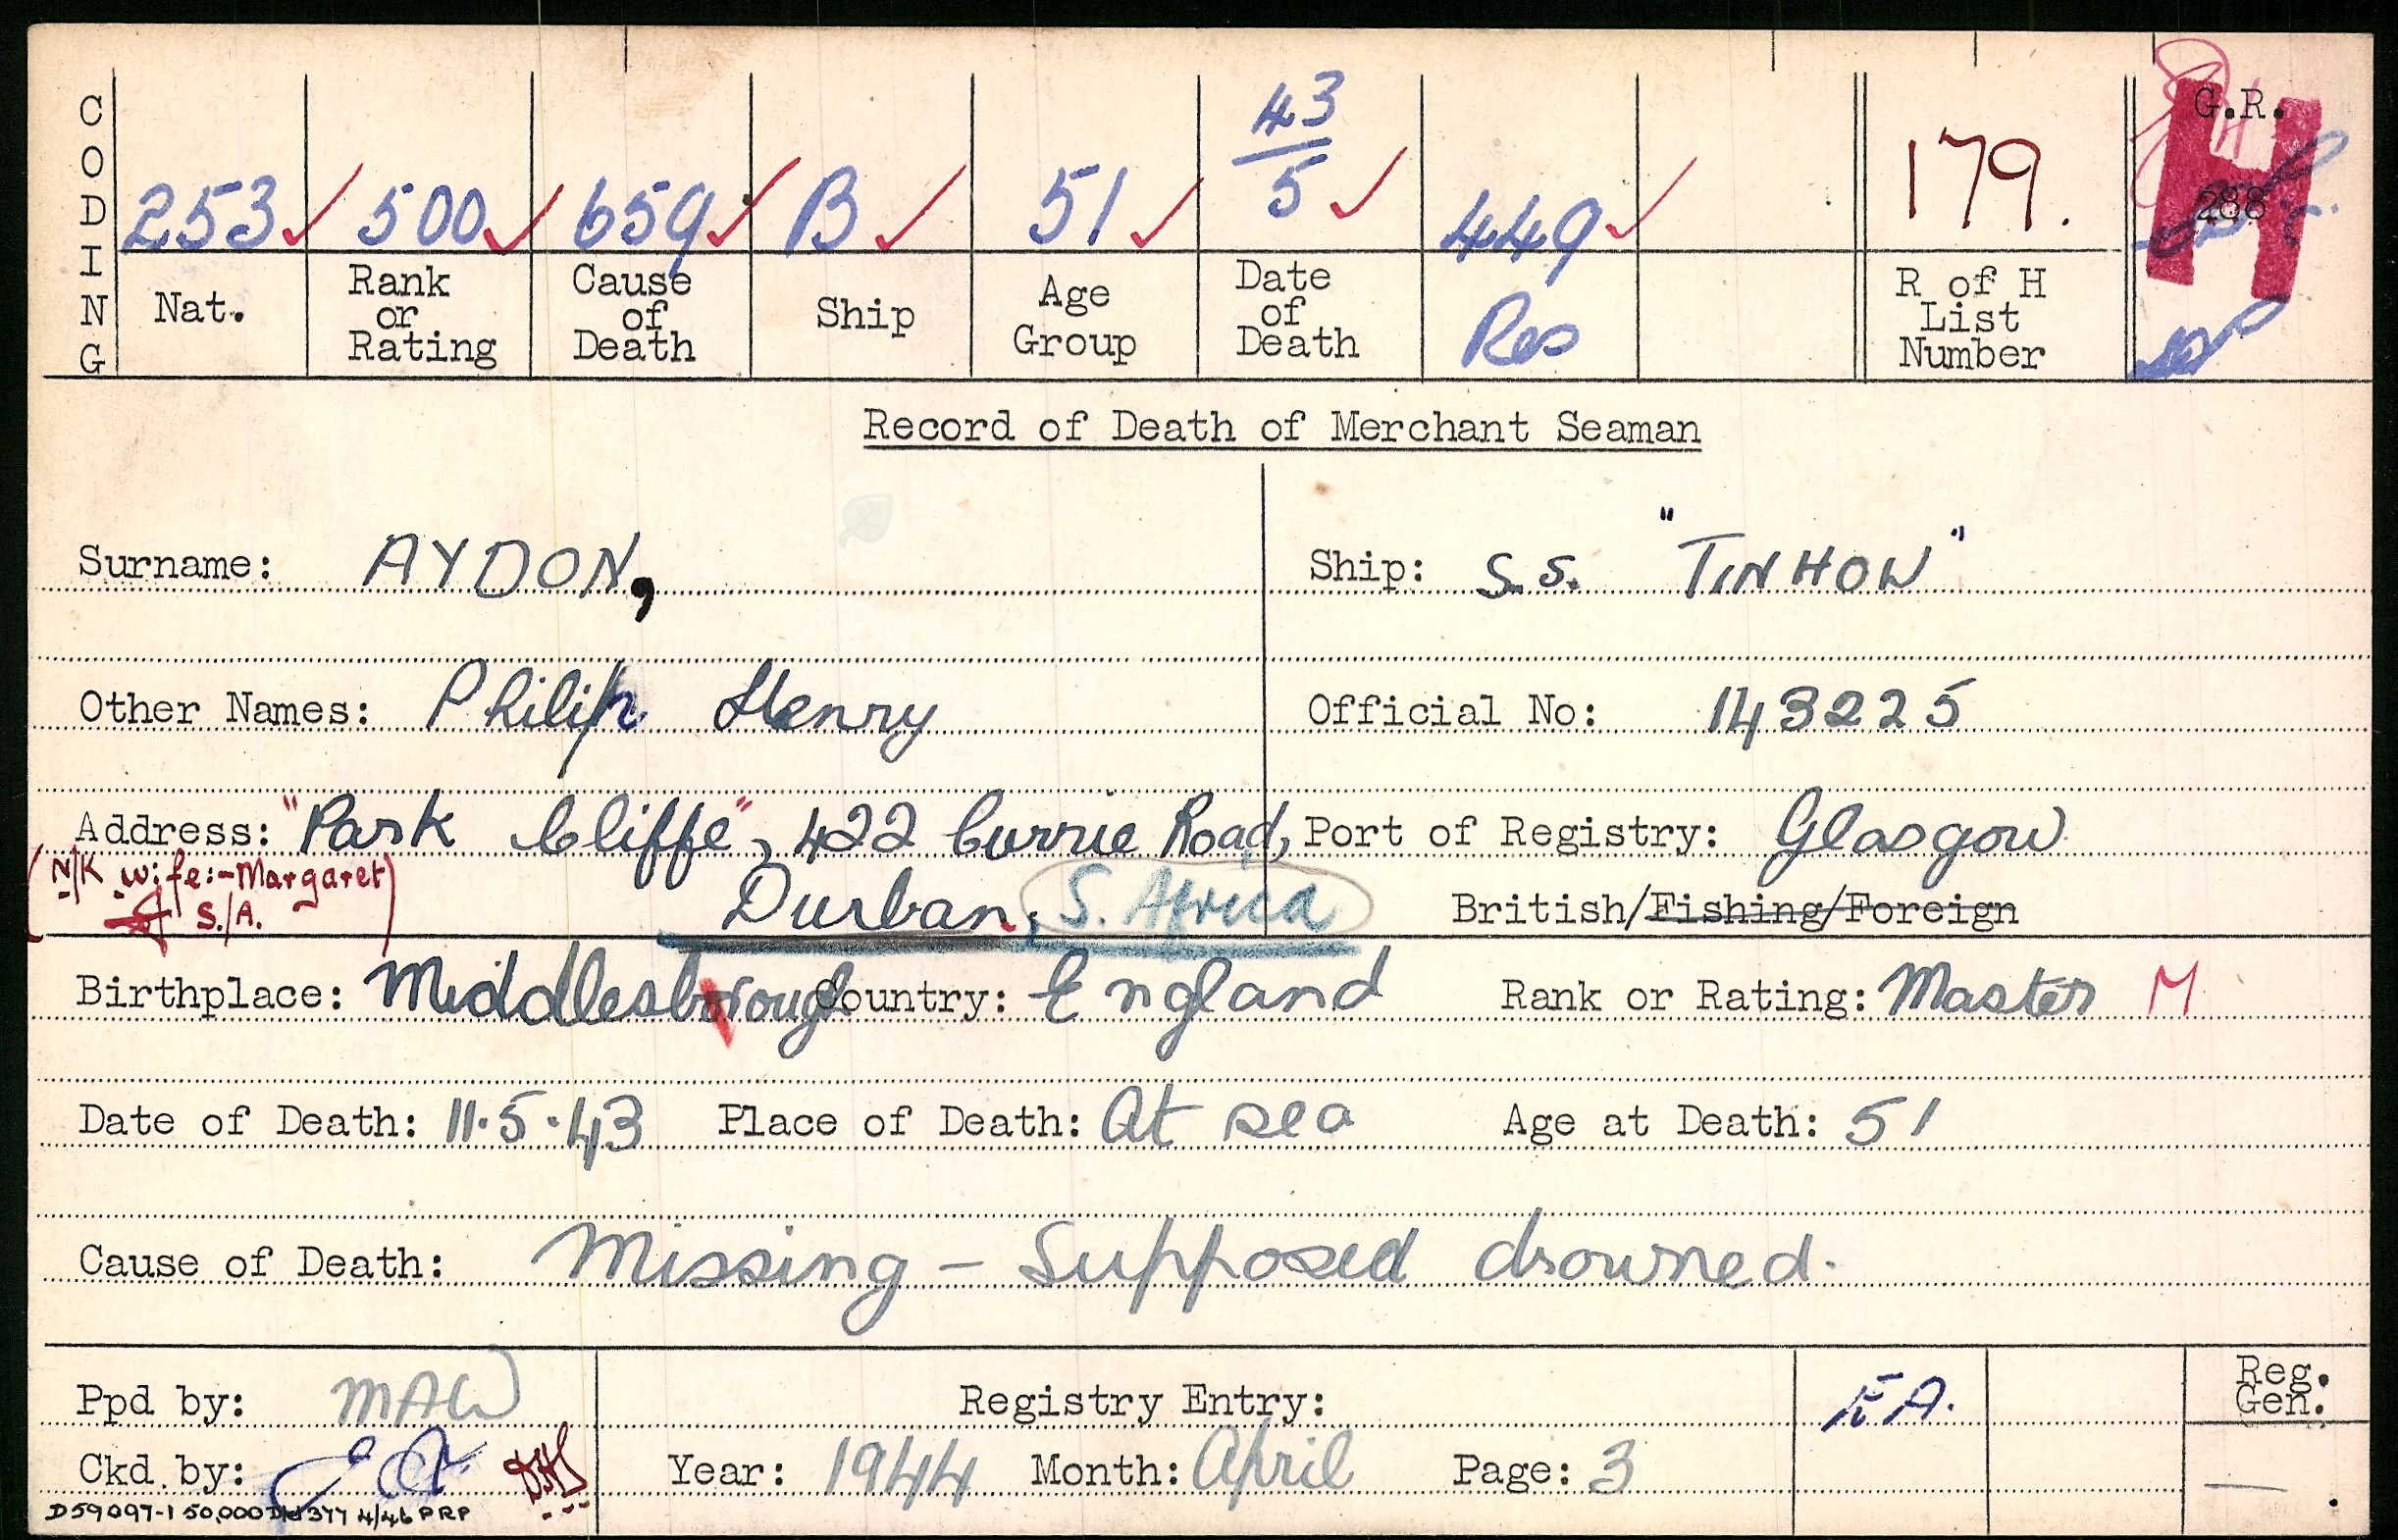 CODING
253 500 659 B 51 43/5 449 179. G.R.
288
Nat. Rank or Rating Cause of Death Ship Age Group Date of Death Res R of H List Number
H
Record of Death of Merchant Seaman
Surname: AYDON, Ship: S.S. "TINHOW"
Other Names: Philip Henry Official No: 143225
Address: "Park Cliffe", 422 Currie Road, Port of Registry: Glasgow
(N/K wife:- Margaret)
S./A.
Durban, S. Africa British/Fishing/Foreign
Birthplace: Middlesbrough Country: England Rank or Rating: Master M
Date of Death: 11.5.43 Place of Death: At sea Age at Death: 51
Cause of Death: Missing - Supposed drowned.
Ppd by: MAW Registry Entry: Reg. Gen.
Ckd by: Year: 1944 Month: April Page: 3